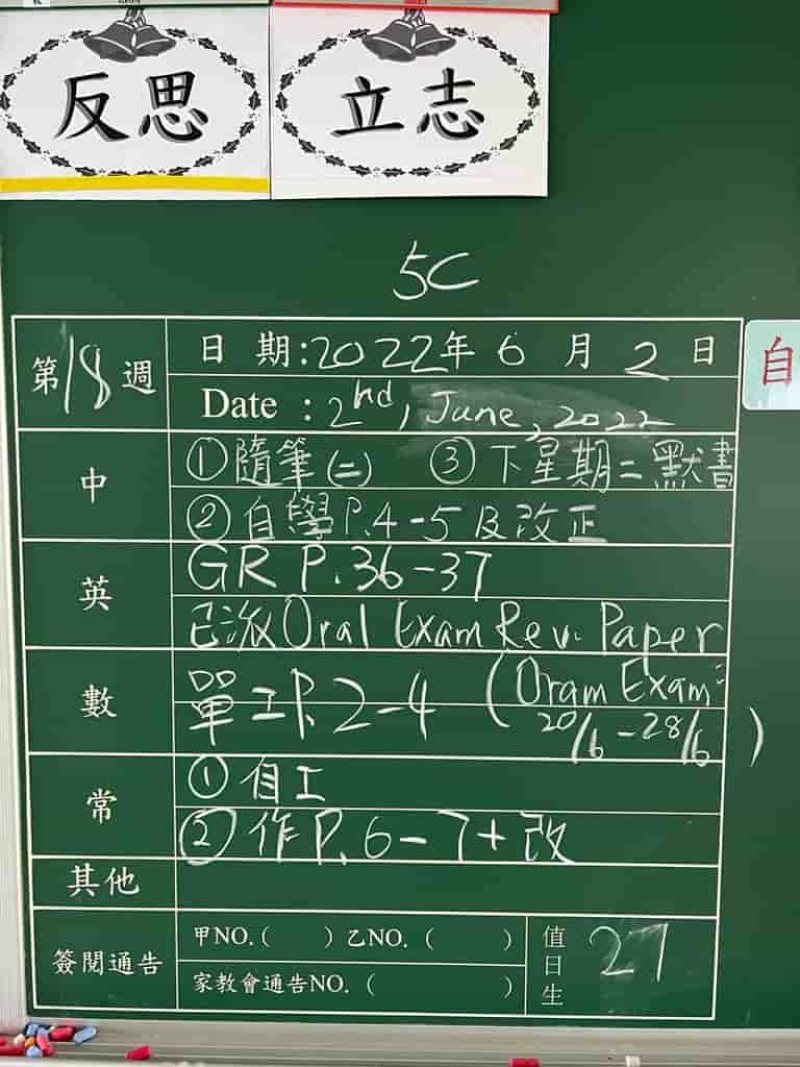 反思 立志
5C
第18週 日期:2022年6月2日
Date : 2nd, June, 2022
中 ①隨筆(二) ③下星期二默書
②自學P.4-5及改正
英 GR P.36-37
已派Oral Exam Rev. Paper
數 單工P.2-4 (Oram Exam:
20/6-28/6)
常 ①自工
②作P.6-7+改
其他
簽閱通告 甲NO.( ) 乙NO.( ) 值日生 27
家教會通告NO.( )
自